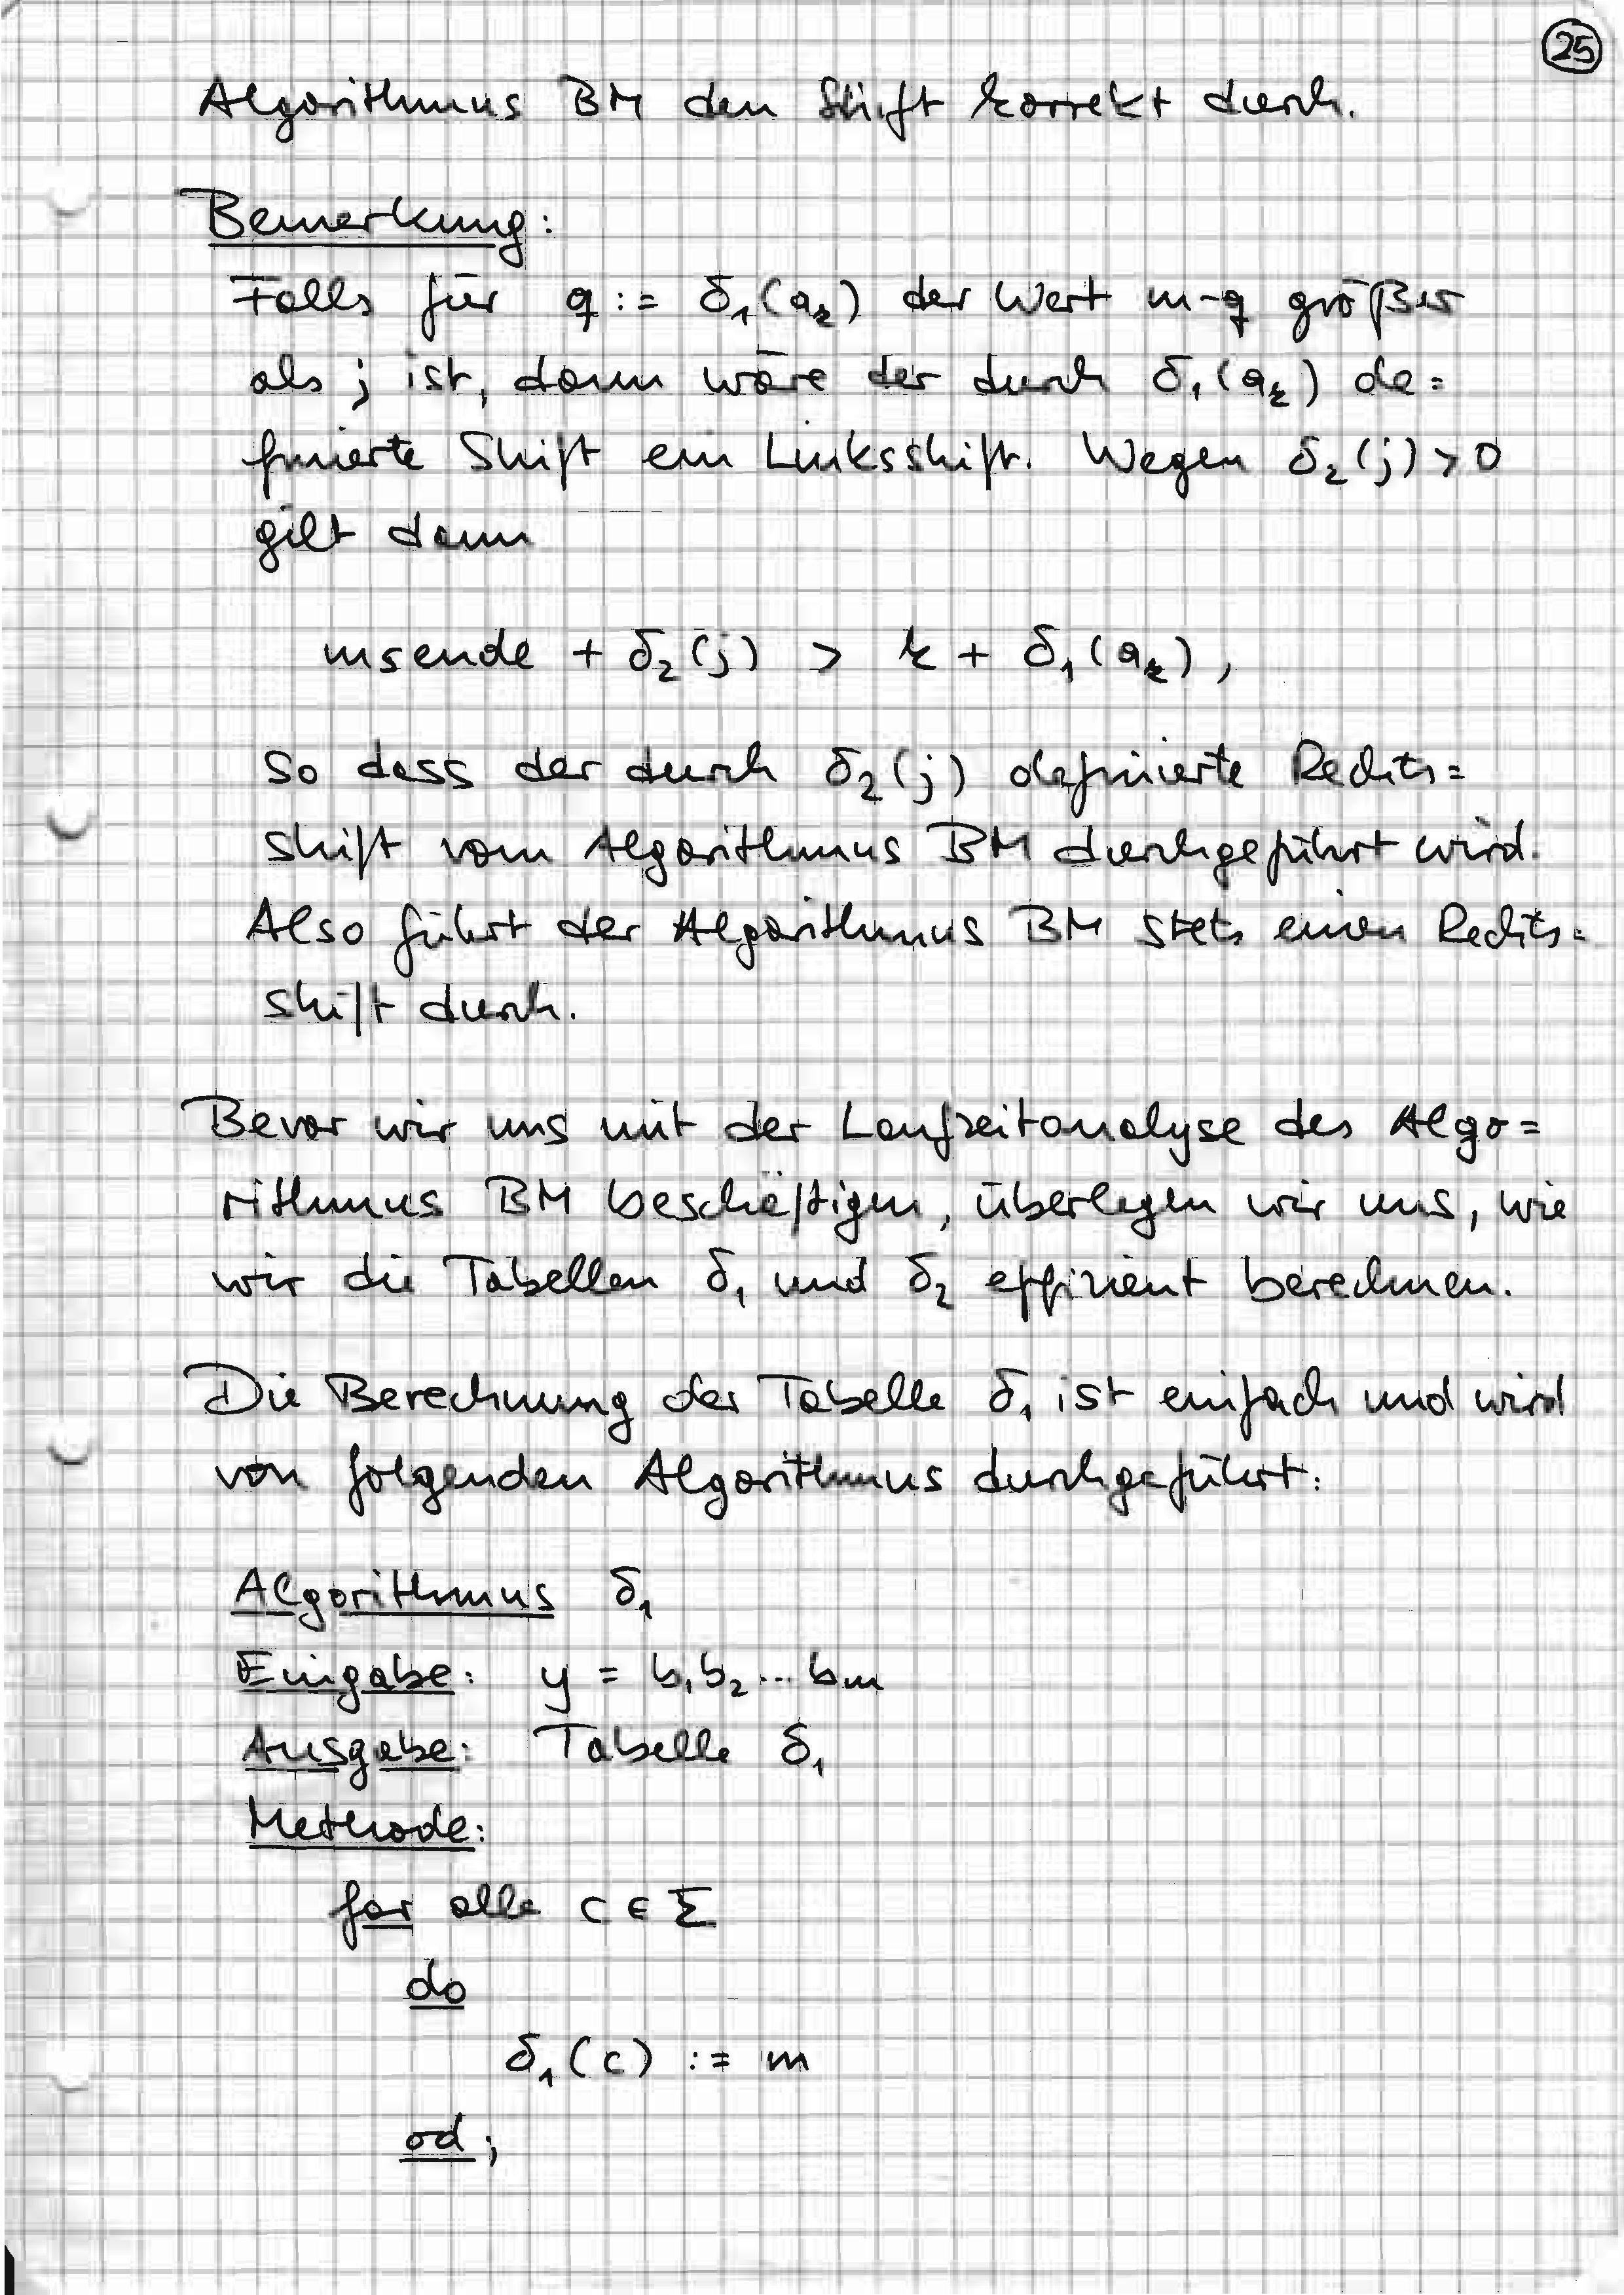 25
Algorithmus BM den Shift korrekt durch.
Bemerkung:
Falls für q := δ₁(aₖ) der Wert m-q größer
als j ist, dann wäre der durch δ₁(aₖ) de=
finierte Shift ein Linksshift. Wegen δ₂(j) > 0
gilt dann
msende + δ₂(j) > k + δ₁(aₖ),
so dass der durch δ₂(j) definierte Rechts=
shift vom Algorithmus BM durchgeführt wird.
Also führt der Algorithmus BM stets einen Rechts=
shift durch.
Bevor wir uns mit der Laufzeitanalyse des Algo=
rithmus BM beschäftigen, überlegen wir uns, wie
wir die Tabellen δ₁ und δ₂ effizient berechnen.
Die Berechnung der Tabelle δ₁ ist einfach und wird
von folgenden Algorithmus durchgeführt:
Algorithmus δ₁
Eingabe: y = b₁b₂...bₘ
Ausgabe: Tabelle δ₁
Methode:
for alle c ∈ Σ
do
δ₁(c) := m
od;